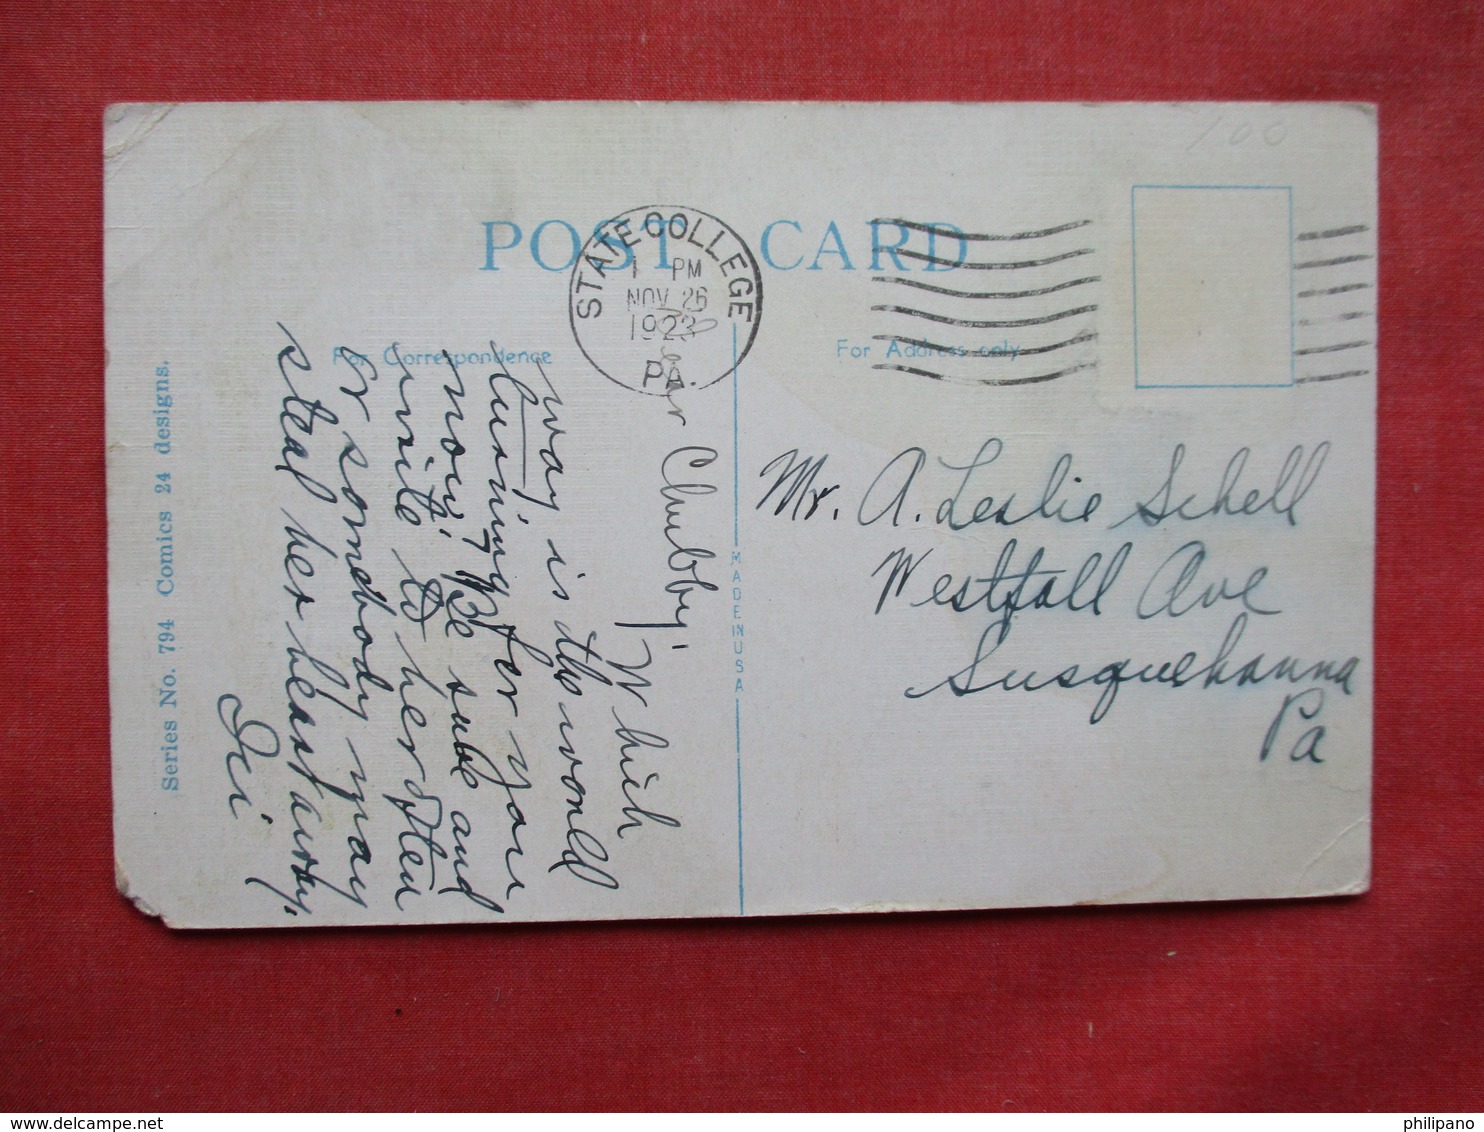 100
POST CARD
STATE COLLEGE
1 PM
NOV 26
1923
PA.
For Correspondence
For Address only
Dear Chubby,
Which
way is the world
turning for you
now? Be sure and
write to her often
or somebody may
steal her heart away.
MADE IN USA
Mr. A. Leslie Schell
Westfall Ave
Susquehanna
Pa
Series No. 794 Comics 24 designs.
philipano